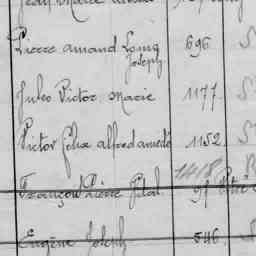 Pierre Amand Louis 696 S
Joseph
Jules Victor Marie 1177 S
Victor Félix alfred amédé 1152
1418
François Pierre Vital 91
Eugène Joseph 546